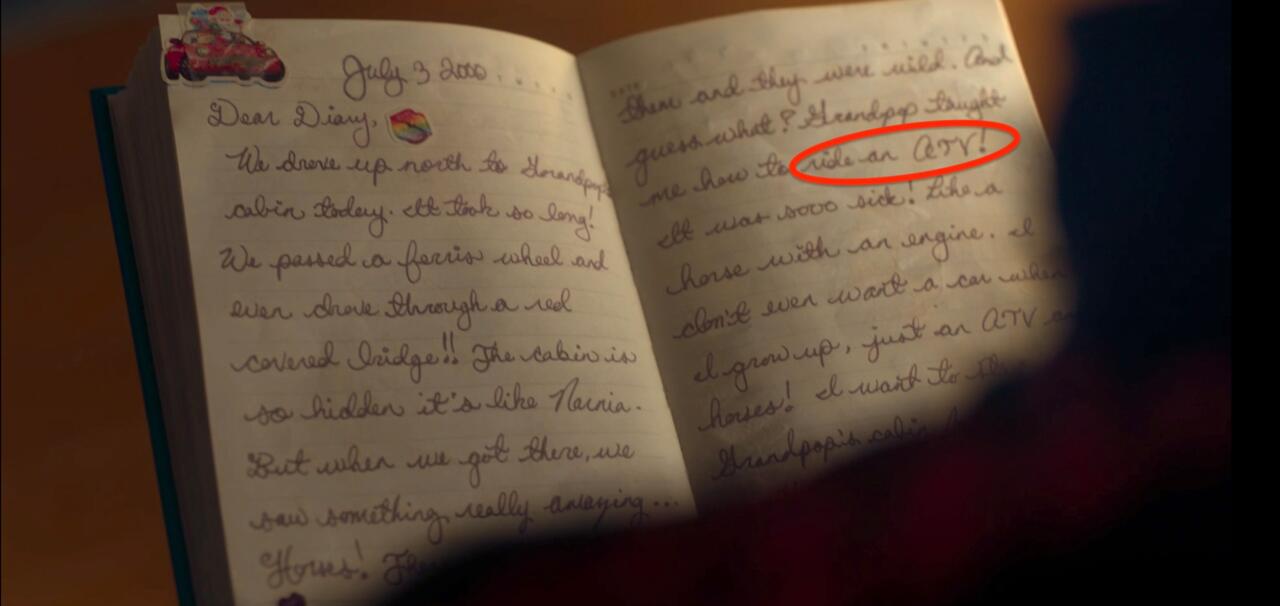 July 3 2000
Dear Diary,
We drove up north to Grandpop's
cabin today. It took so long!
We passed a ferris wheel and
even drove through a red
covered bridge!! The cabin is
so hidden it's like Narnia.
But when we got there, we
saw something really amazing...
Horses!
DATE
them and they were wild. And
guess what? Grandpop taught
me how to ride an ATV!
It was sooo sick! Like a
horse with an engine. I
don't even want a car when
I grow up, just an ATV
horses! I want to
Grandpop's cabin